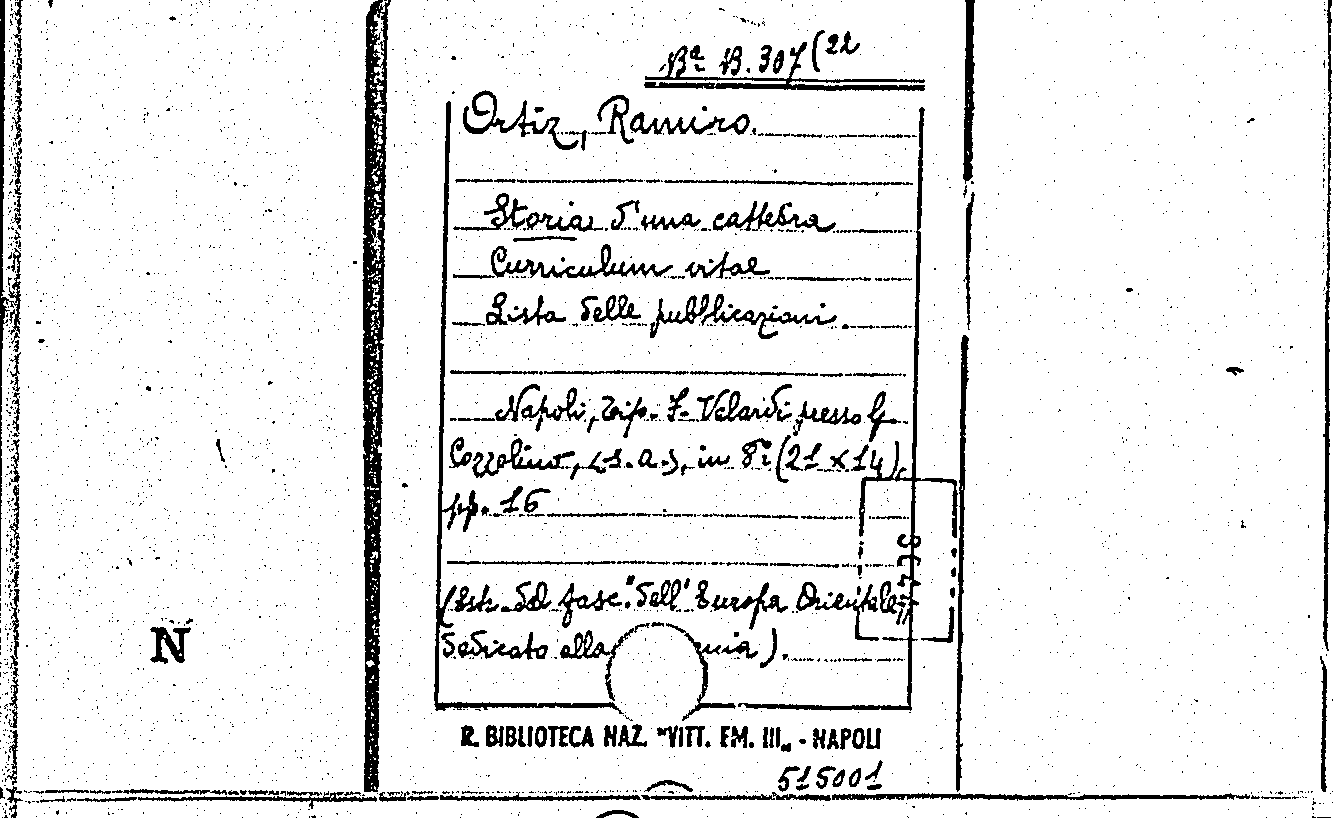 Bª B. 307 (22
Ortiz, Ramiro.
Storia d'una cattedra
Curriculum vitae
Lista delle pubblicazioni.
Napoli, Tip. F. Velardi presso G.
Cozzolino, <s. a.>, in 8° (21 x 14),
pp. 16
(Estr. dal fasc. "dell' Europa Orientale"
dedicato alla nia).
N
R. BIBLIOTECA NAZ. "VITT. EM. III„ - NAPOLI
515001